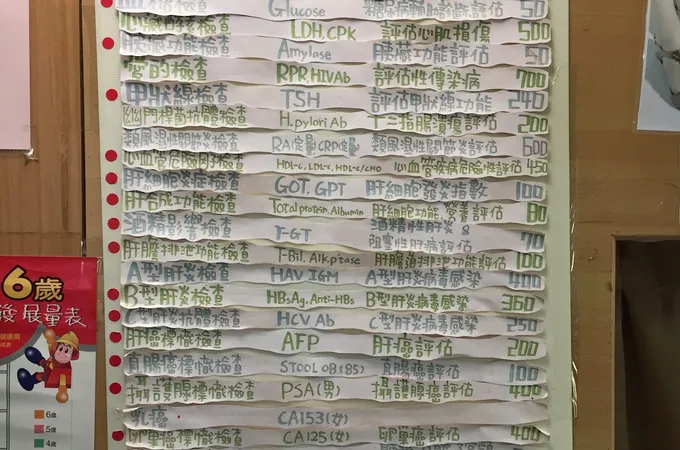 Glucose 糖尿病輔助診斷評估 50
LDH,CPK 評估心肌損傷 500
胰臟功能檢查 Amylase 胰臟功能評估 50
愛的檢查 RPR,HIVAb 評估性傳染病 700
甲狀線檢查 TSH 評估甲狀線功能 240
幽門桿菌抗體檢查 H.pylori Ab 十二指腸潰瘍評估 200
類風濕性關節炎檢查 RA(定量)CRP(定量) 類風濕性關節炎評估 600
心血管危險因子檢查 HDL-C, LDL-C, HDL-C/CHO 心血管疾病危險性評估 450
肝細胞炎症檢查 GOT, GPT 肝細胞發炎指數 100
肝合成功能檢查 Total protein, Albumin 肝細胞功能,營養評估 80
酒精影響檢查 r-GT 酒精性肝炎&
阻塞性肝病評估 70
肝膽排泄功能檢查 T-Bil, Alk-p'tase 肝膽道排泄功能評估 100
A型肝炎檢查 HAV IGM A型肝炎病毒感染 400
B型肝炎檢查 HBsAg, Anti-HBs B型肝炎病毒感染 360
C型肝炎抗體檢查 HCV Ab C型肝炎病毒感染 250
肝癌標幟檢查 AFP 肝癌評估 200
直腸癌標幟檢查 STOOL OB(BS) 直腸癌評估 100
攝護腺標幟檢查 PSA(男) 攝護腺癌評估 400
乳癌 CA153(女)
卵巢癌標幟檢查 CA125(女) 卵巢癌評估 400
6歲
發展量表
6歲
5歲
4歲